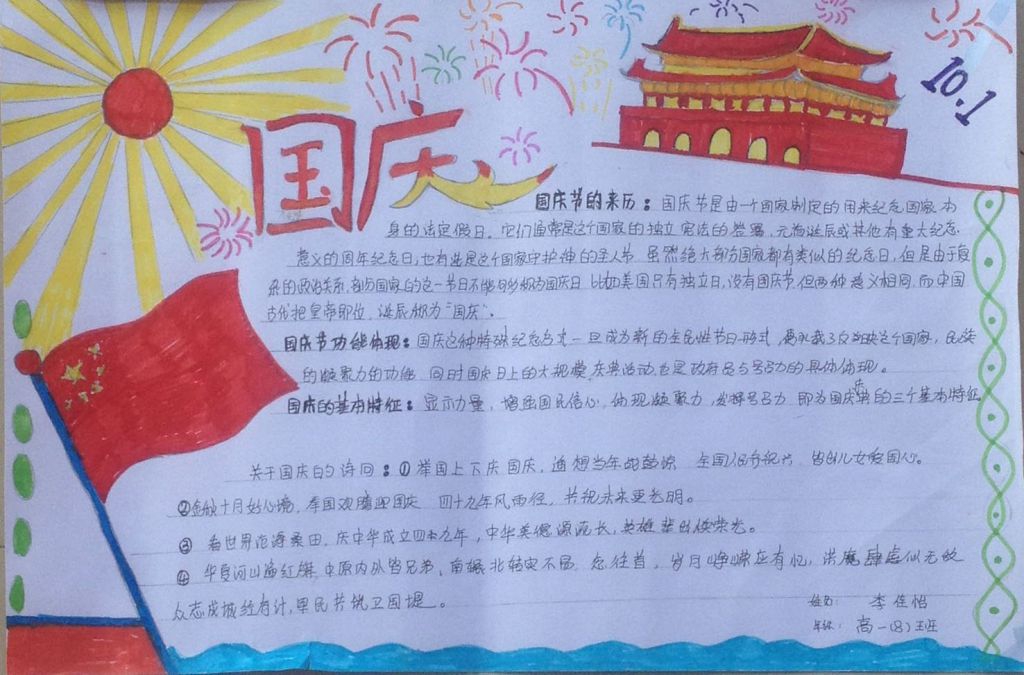 国庆
10.1
国庆节的来历：国庆节是由一个国家制定的用来纪念国家本
身的法定假日。它们通常是这个国家的独立、宪法的签署、元首诞辰或其他有重大纪念
意义的周年纪念日，也有些是这个国家守护神的圣人节。虽然绝大部分国家都有类似的纪念日，但是由于复
杂的政治关系，部分国家的这一节日不能够称为国庆日，比如美国只有独立日，没有国庆节，但两种意义相同。而中国
古代把皇帝即位、诞辰称为“国庆”。
国庆节功能体现：国庆这种特殊纪念方式一旦成为新的全民性节日形式，便承载了反映这个国家、民族
的凝聚力的功能。同时国庆日上的大规模庆典活动，也是政府号召力的具体体现。
国庆的基本特征：显示力量，增强国民信心，体现凝聚力，发挥号召力，即为国庆节的三个基本特征
关于国庆的诗词：①举国上下庆国庆，遥想当年战鼓 全国 儿女爱国心。
② 十月好心境，举国欢腾迎国庆 四十九年风雨径，共祝未来更光明。
③ 看世界沧海桑田，庆中华成立四十九年，中华美德源流长，英雄辈出 荣光。
④ 华夏河山遍红旗，中原内外皆兄弟，南辕北辙定不局，忽往首，岁月峥嵘应有忆，洪魔肆虐似无敌
众志成城终有计，军民共铸卫国堤。
姓名：李佳怡
年级：高一(8)班